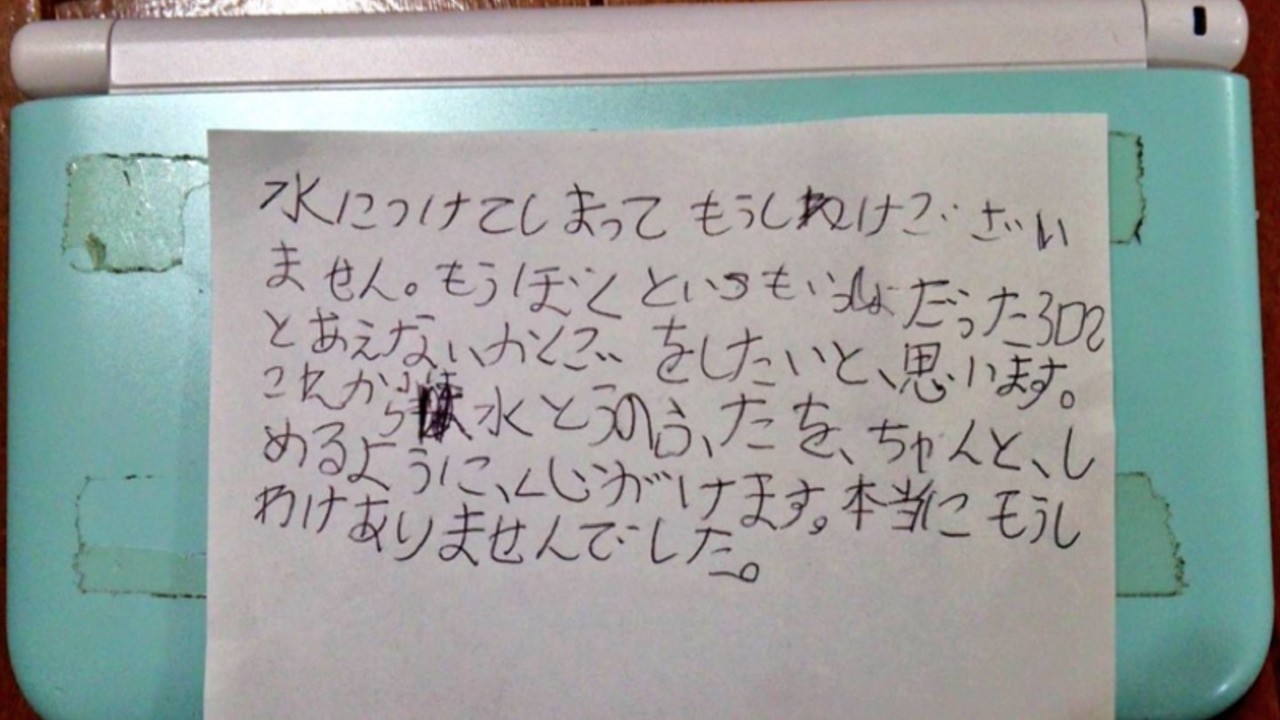 水につけてしまって もうしわけござい
ません。もうぼくといつもいっしょだった3DS
とあえないかくごをしたいと、思います。
これからは、水とうのふたを、ちゃんと、し
めるように、くじがけます。本当にもうし
わけありませんでした。